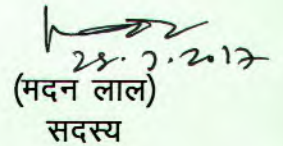 28.7.2017
(मदन लाल)
सदस्य